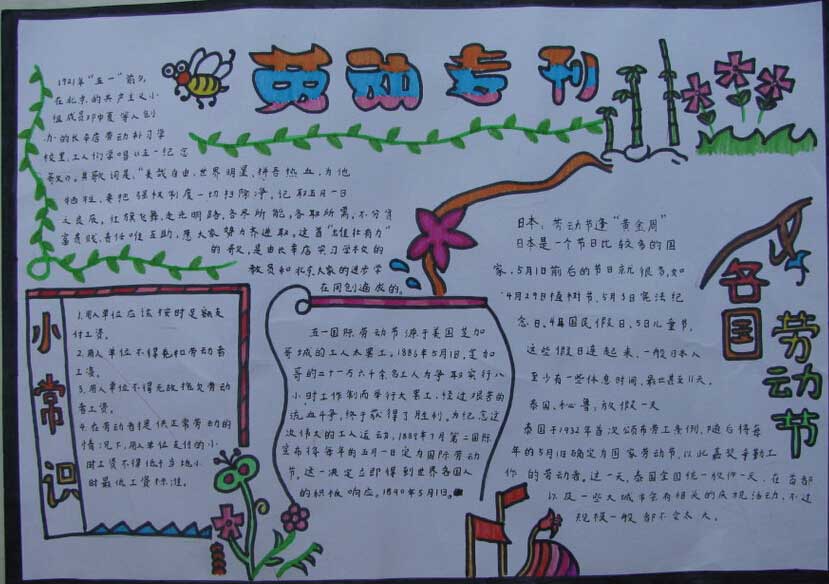 劳动专刊
1921年"五一"前夕,
在北京的共产主义小
组成员邓中夏等人创
办的长辛店劳动补习学
校里,工人们学唱《五一纪念
歌》。其歌词是,"美哉自由,世界明星,拼吾热血,为他
牺牲,要把强权制度一切扫除净,记取五月一日
之良辰。红旗飞舞,走光明路,各尽所能,各取所需,不分贫
富贵贱,责任唯互助,愿大家努力齐进取。这首"雄壮有力"
的歌,是由长辛店
教员和北京大家的进步学
在同创造成的。
小常识
1.用人单位应该按时足额支
付工资。
2.用人单位不得克扣劳动者
工资。
3.用人单位不得无故拖欠劳动
者工资。
4.在劳动者提供正常劳动的
情况下,用人单位支付的小
时工资不得低于当地小
时最低工资标准。
五一国际劳动节源于美国芝加
哥城的工人大罢工。1886年5月1日,芝加
哥的二十一万六千余名工人为争取实行八
小时工作制而举行大罢工,经过艰苦的
流血斗争,终于获得了胜利。为纪念这
次伟大的工人运动,1889年7月第二国际
宣布将每年的五月一日定为国际劳动
节。这一决定立即得到世界各国人
的积极响应。1890年5月1日。
各国劳动节
日本:劳动节逢"黄金周"
日本是一个节日比较多的国
家,5月1日前后的节日就很多,如
4月29日植树节、5月3日宪法纪
念日、4日国民假日、5日儿童节,
这些假日连起来,一般日本人
至少有一些休息时间,最长甚至11天。
泰国、秘鲁:放假一天
泰国于1932年首次颁布劳工条例,随后将每
年的5月1日确定为国家劳动节,以此嘉奖辛勤工
作的劳动者。这一天,泰国全国统一放假一天,在首都
以及一些大城市会有相关的庆祝活动,不过
规模一般都不会太大。